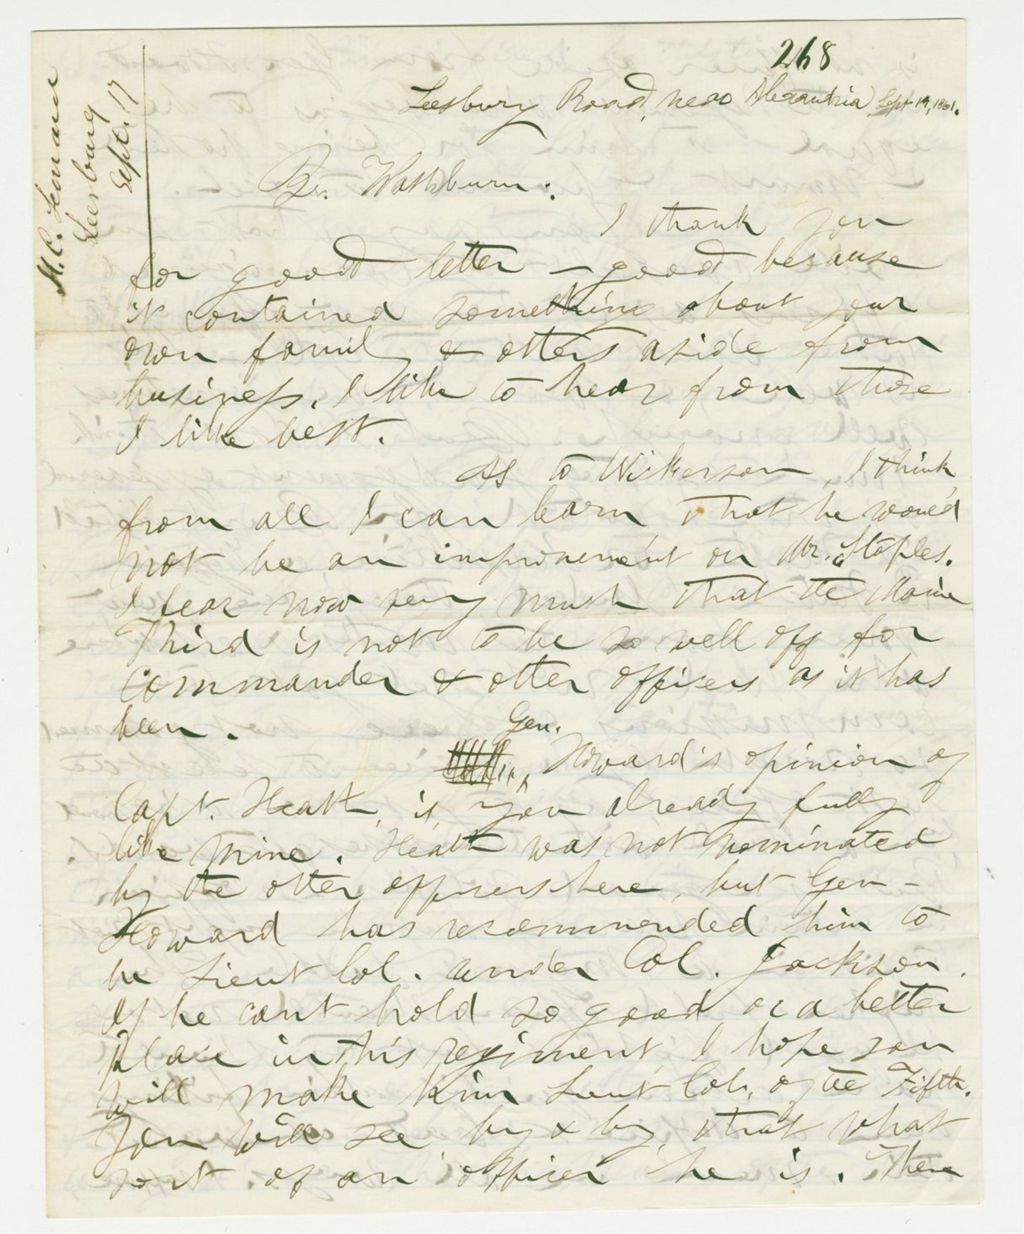 268
Leesburg Road, near Alexandria, Sept 17, 1861.
H. C. Leonard
Leesburg
Sept. 17
Br. Washburn:
I thank you
for good letter – good because
it contained something about your
own family & others aside from
business. I like to hear from those
I like best.
As to Wilkerson, I think
from all I can learn that he would
not be an improvement on Mr. Staples.
I fear now very much that the Maine
Third is not to be so well off for
commander & other officers as it has
been.
Gen.
Howard's opinion of
Capt. Heath, is you already fully
like mine. Heath was not nominated
by the other officers here, but Gen –
Howard has recommended him to
be Lieut Col. under Col. Jackson.
If he cant hold so good or a better
place in this regiment, I hope you
will make him Lieut Col. of the Fifth.
You will see by & by that what
sort of an officer he is. There